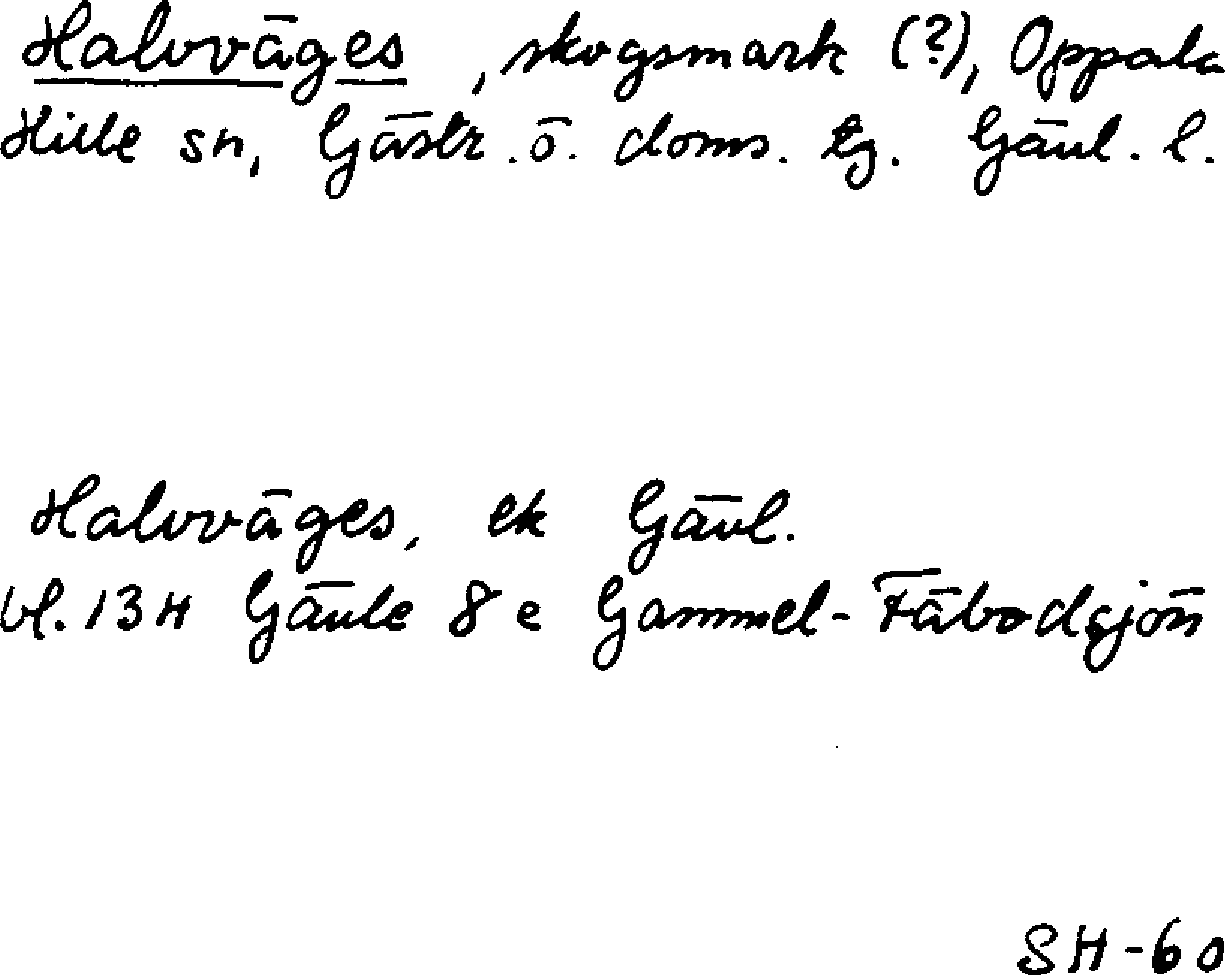 Halvväges, skogsmark (?), Oppala
Hille sn, Gästr. ö. doms. tg. Gävl. l.
Halvväges, ek Gävl.
bl. 13H Gävle 8e Gammel-Fäbodsjön
SH-60